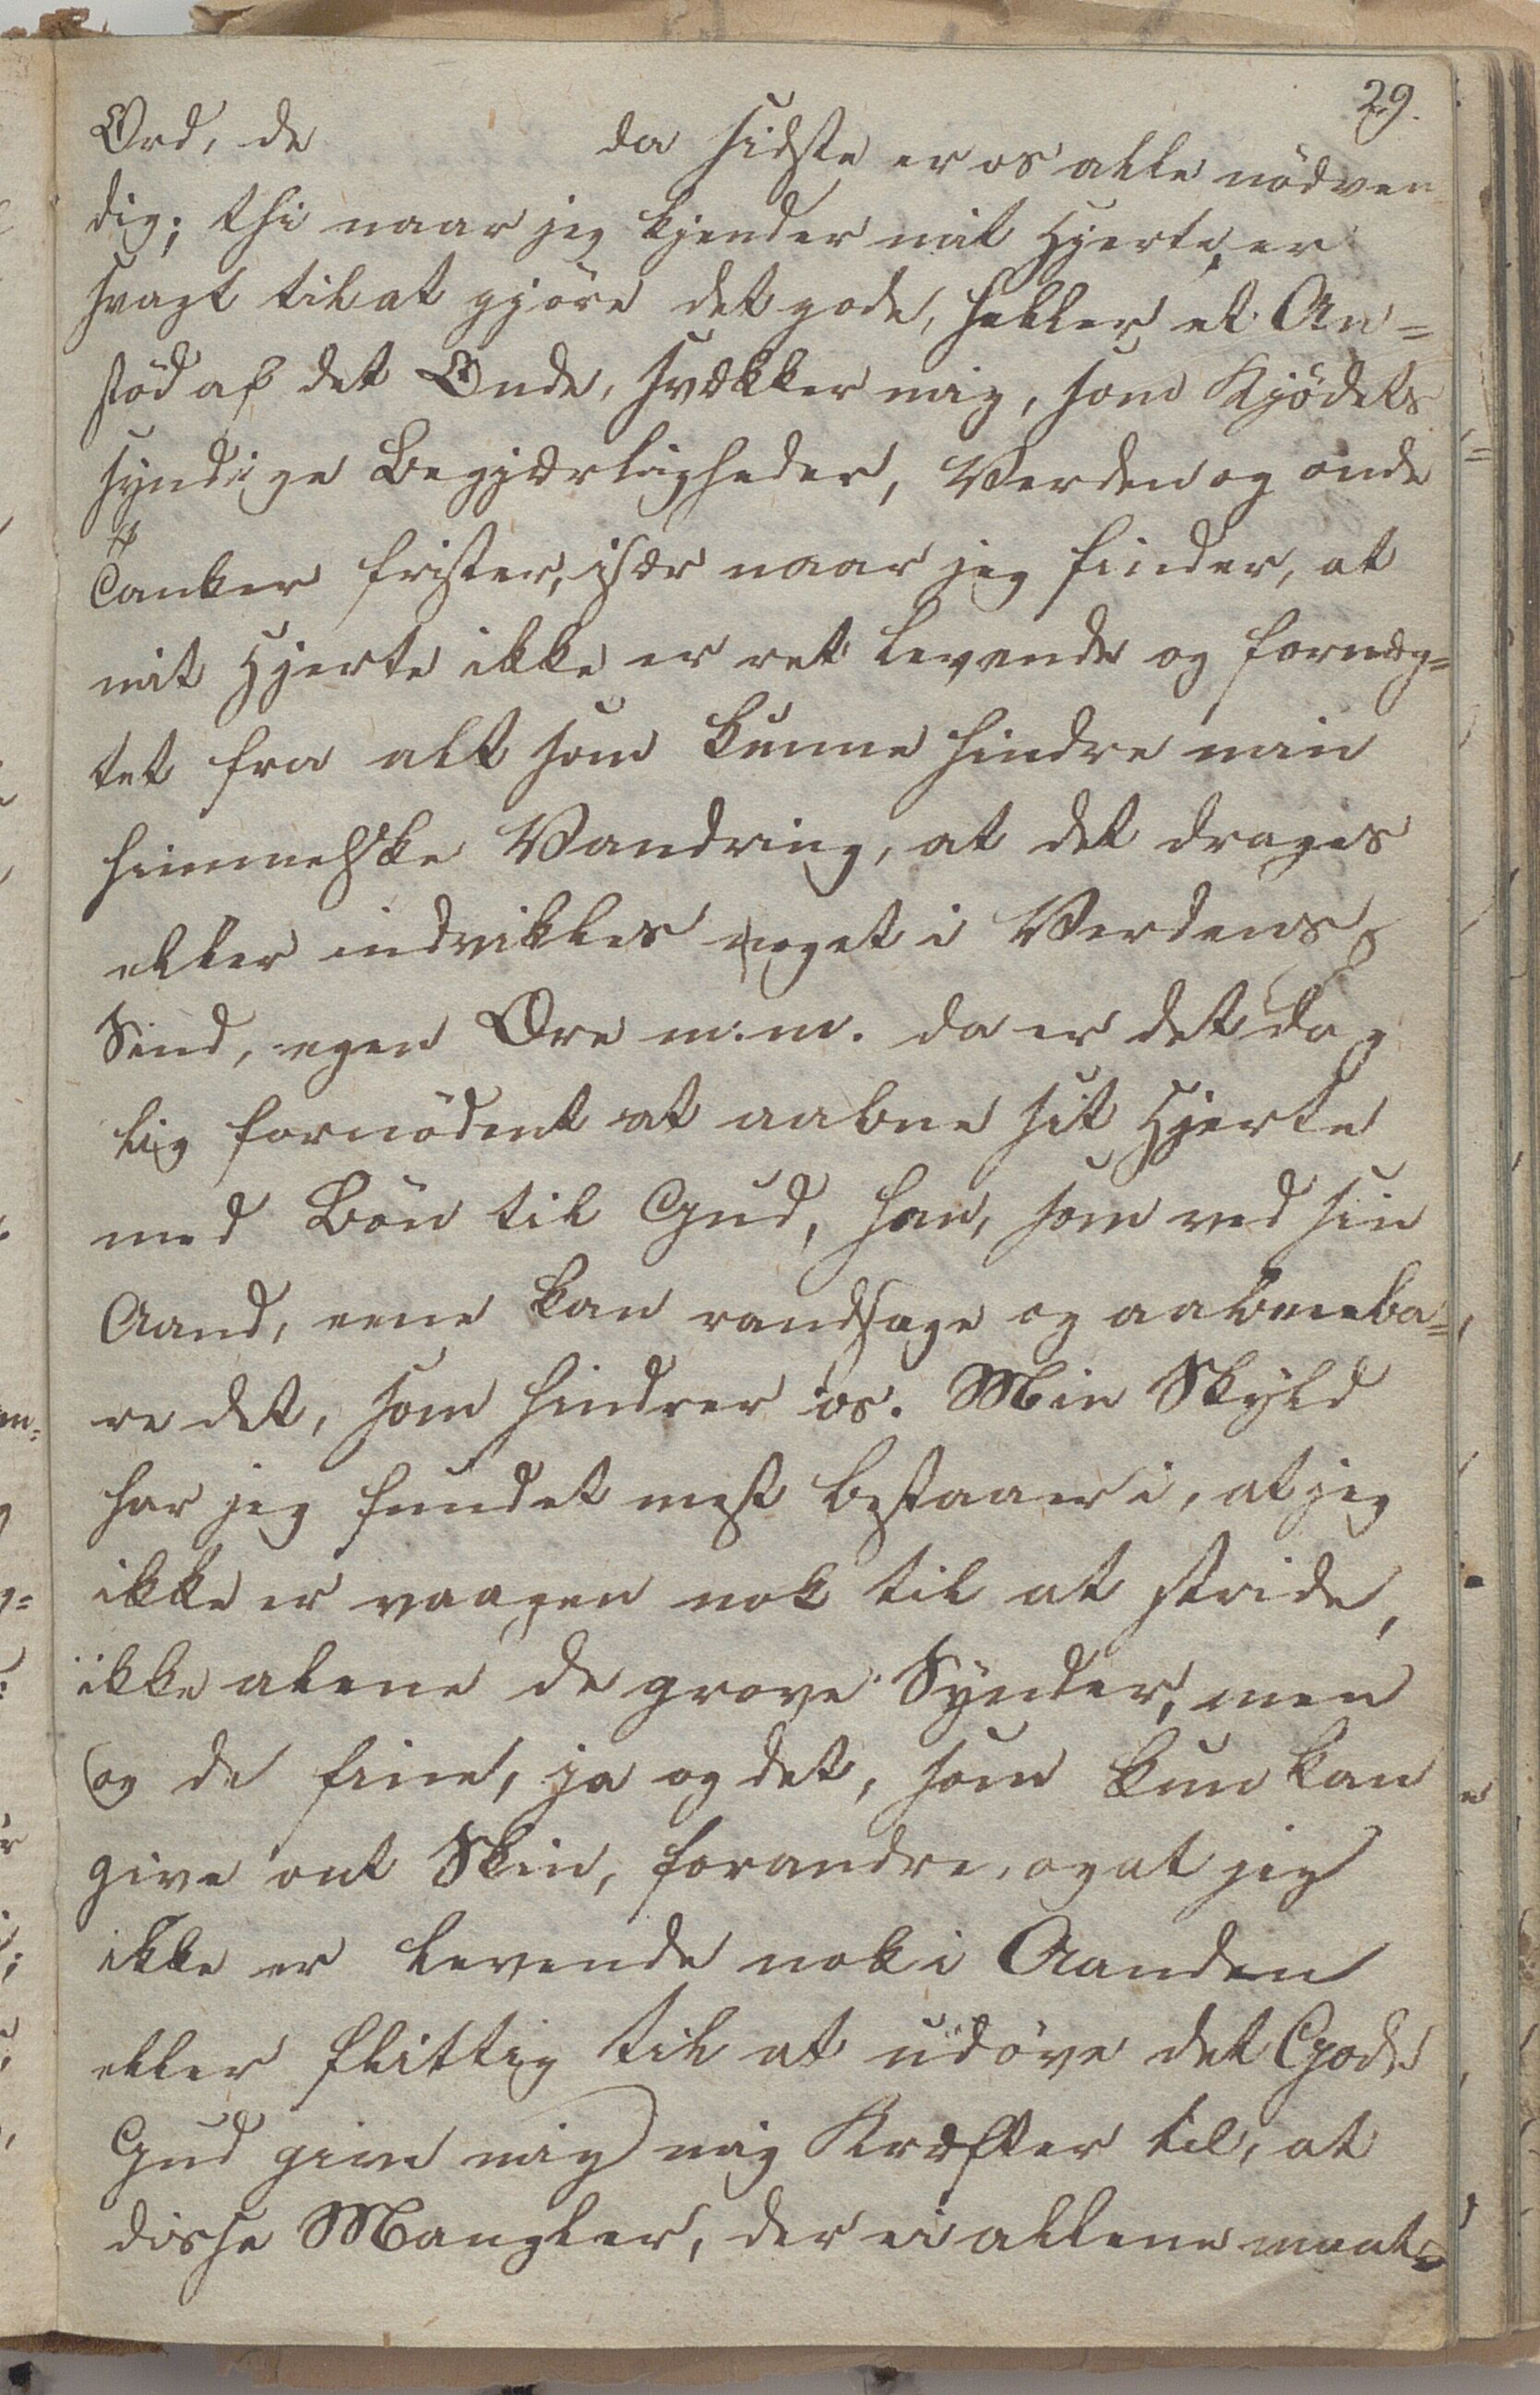 29.
Ord, de da sidste er os alle nödven
dig; thi naar jeg kjender mit Hjerte, er
svagt til at gjöre det gode, heller et An=
stöd af det Onde, svækker mig, som Kjödets
syndige Begjærligheder, Verden og onde
Tanker frister, især naar jeg finder, at
mit Hjerte ikke er ret levende og fornæg=
tet fra alt som kunne hindre min
himmelske Vandring, at det drages
eller indvikles noget i Verdens
Sind, egen Ære m:m. da er det dag
lig fornödent at aabne sit Hjerte
med Bön til Gud, han, som ved sin
Aand, eene kan randsage og aabenba=
re det, som hindrer os. Min Skyld
har jeg fundet mest bestaaer i, at jeg
ikke er vaagen nok til at stride,
ikke alene de grove Synder, men
og de fine, ja og det, som kun kan
give ont Skin, forandre, og at jeg
ikke er levende nok i Aanden
eller flittig til at udöve det Gode
Gud give mig mig Kræfter til, at
disse Mangler, der ei allene maat=